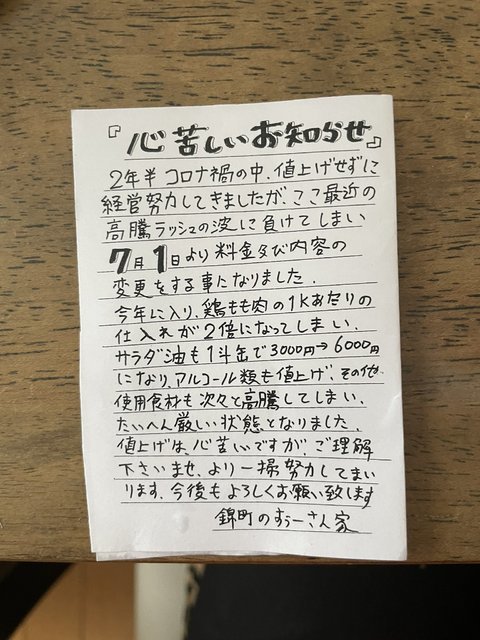 『心苦しいお知らせ』
2年半コロナ禍の中、値上げせずに
経営努力してきましたが、ここ最近の
高騰ラッシュの波に負けてしまい
7月1日より料金及び内容の
変更をする事になりました。
今年に入り、鶏もも肉の1Kあたりの
仕入れが2倍になってしまい、
サラダ油も1斗缶で3000円→6000円
になり、アルコール類も値上げ、その他
使用食材も次々と高騰してしまい、
たいへん厳しい状態となりました。
値上げは、心苦しいですが、ご理解
下さいませ、より一掃努力してまい
ります、今後もよろしくお願い致します
錦町のすぅーさん家